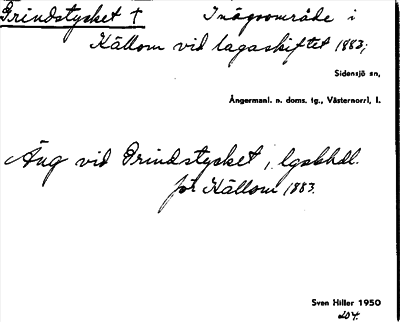 Grindstycket † Inägoområde i
Källom vid lagaskiftet 1883;
Sidensjö sn,
Ångermanl. n. doms. tg., Västernorrl. l.
Äng vid Grindstycket i lgskhdl.
för Källom 1883.
Sven Hiller 1950
204.